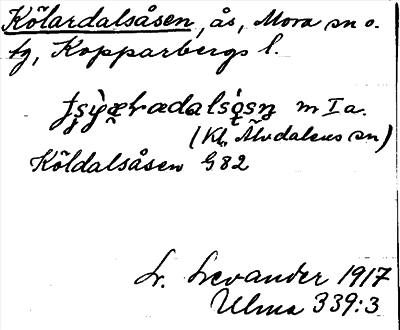 Kölardalsåsen, ås, Mora sn o.
tg, Kopparbergs l.
m I a.
(Kh, Älvdalens sn)
Köldalsåsen G 82
L. Levander 1917
Ulma 339:3